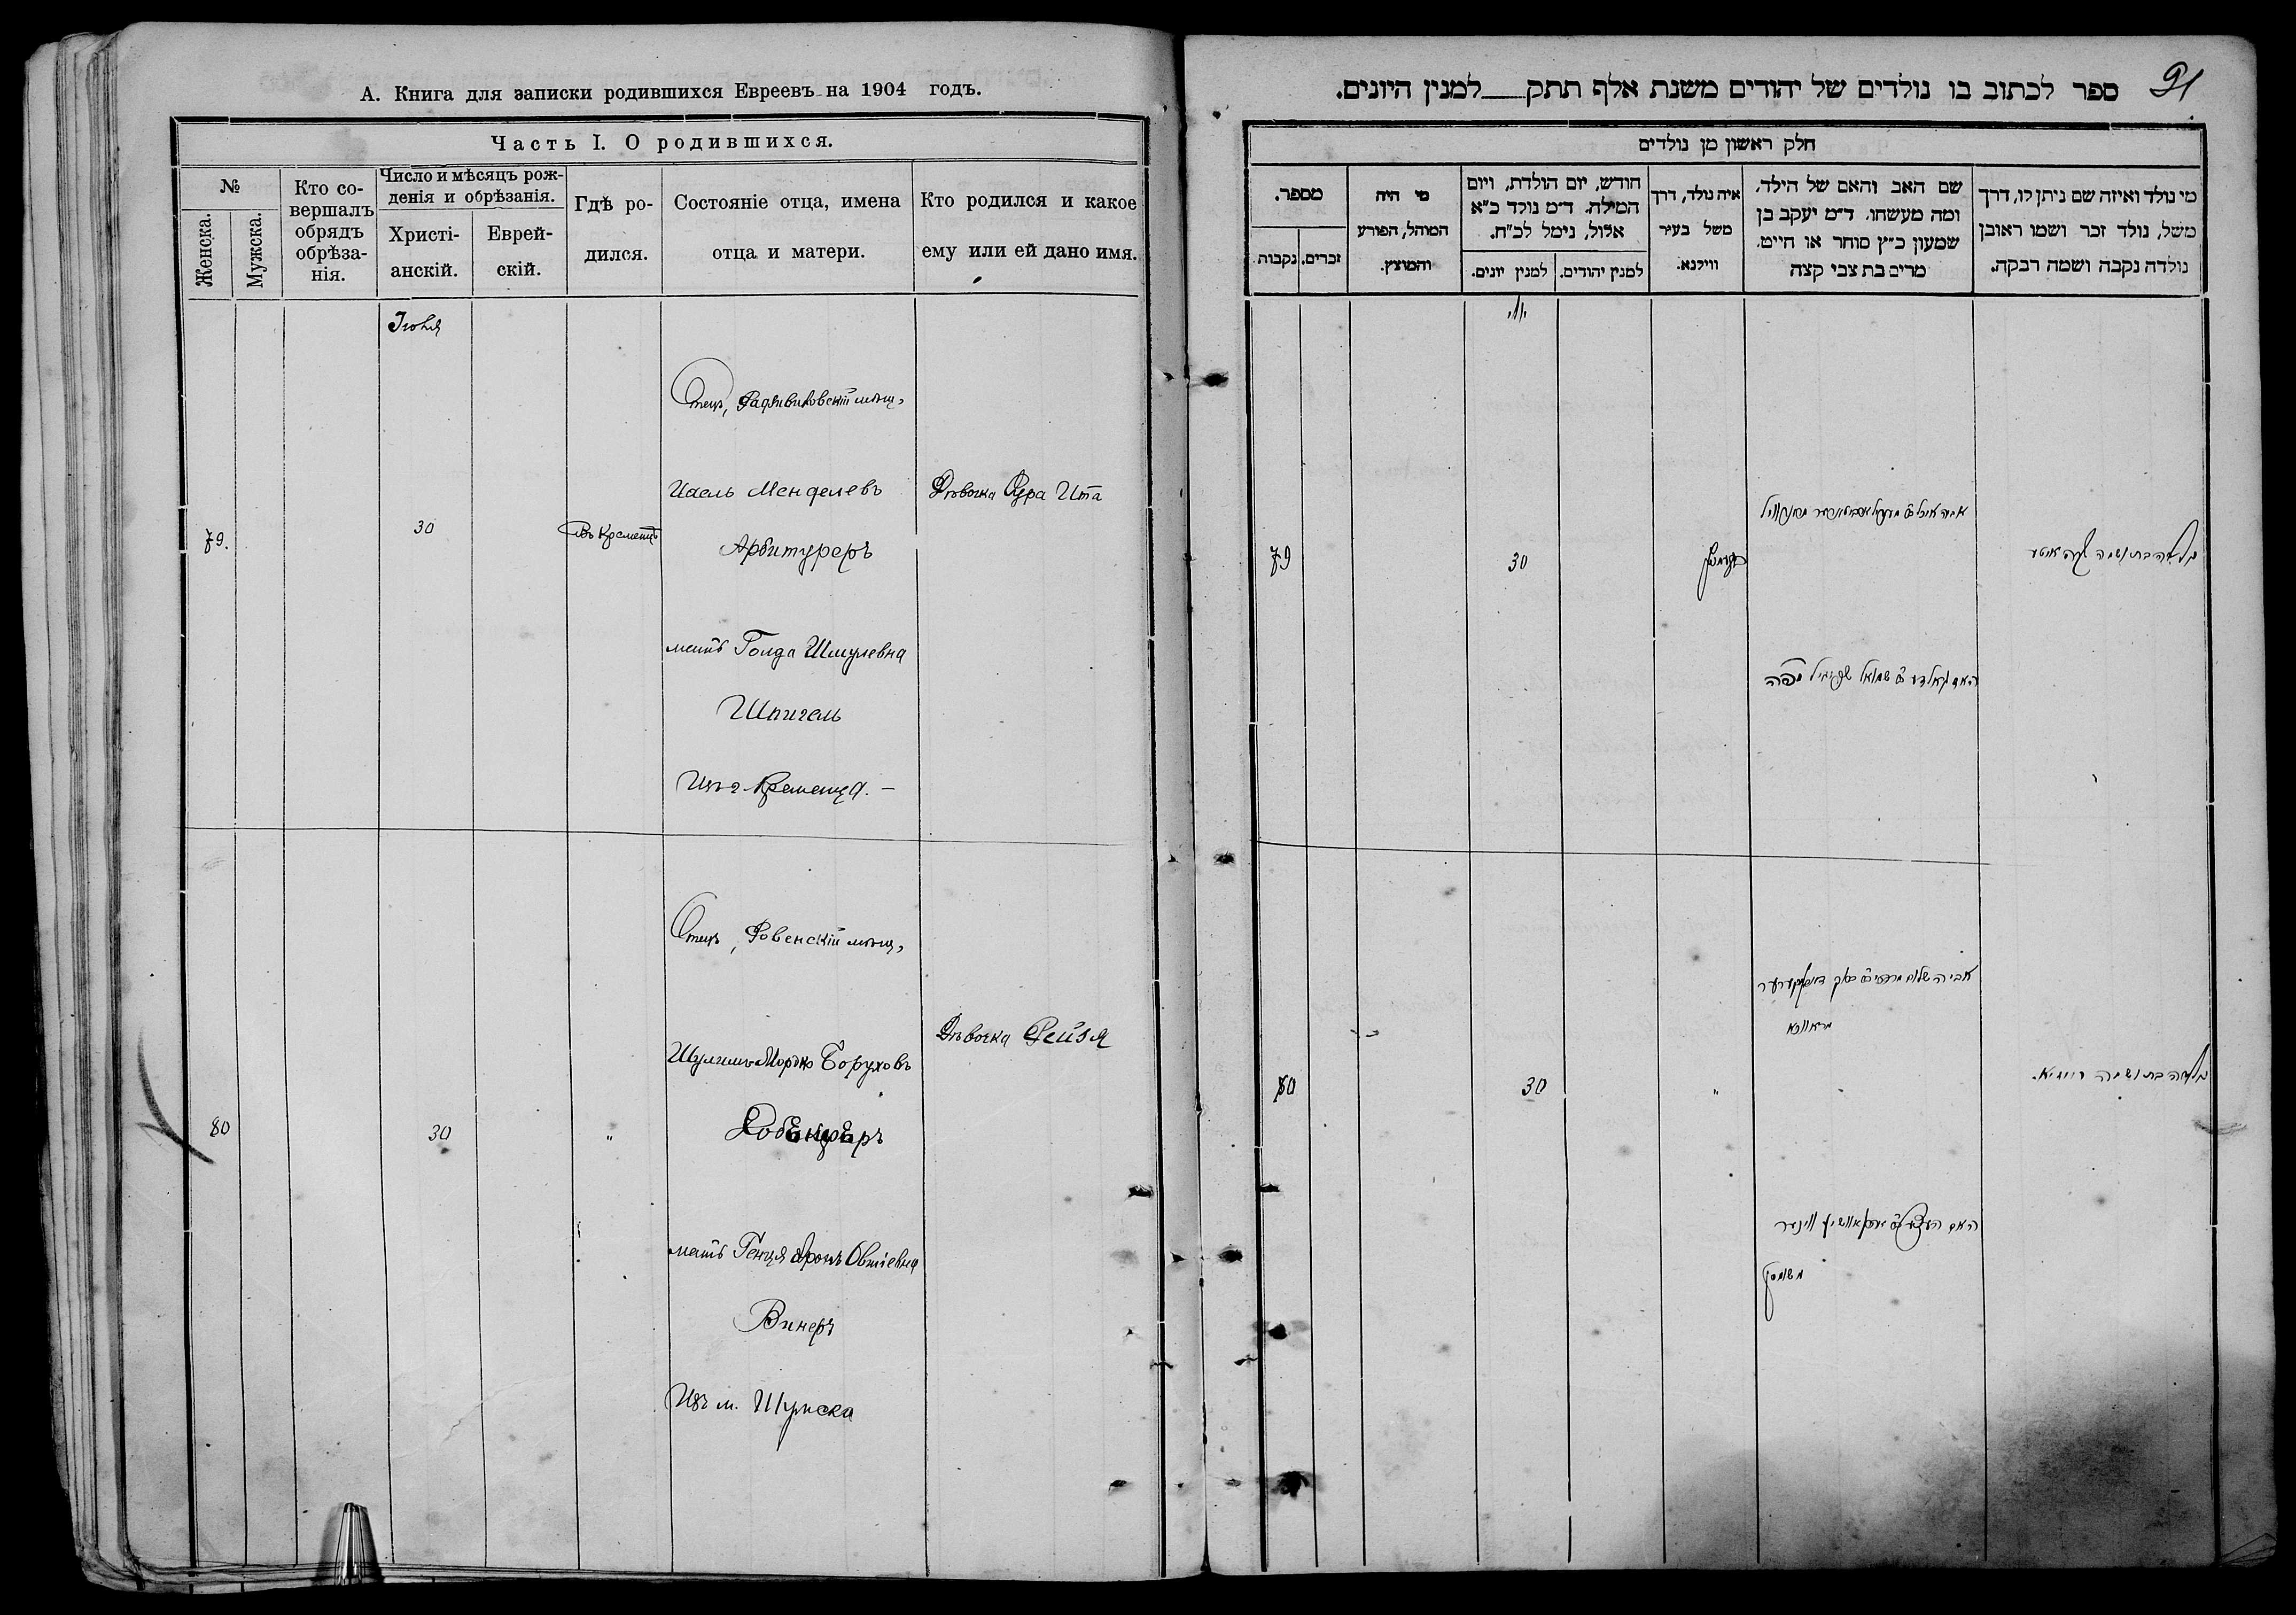 А. Книга для записки родившихся Евреевъ на 1904 годъ.
Часть I. О родившихся.
№
Женска.
Мужска.
Кто со-
вершалъ
обрядъ
обрѣза-
нія.
Число и мѣсяцъ рож-
денія и обрѣзанія.
Христі-
анскій.
Еврей-
скій.
Гдѣ ро-
дился.
Состояніе отца, имена
отца и матери.
Кто родился и какое
ему или ей дано имя.
Іюля
79.
30
Въ Кременцѣ
Отецъ, Радзивиловскій мѣщ.
Исель Менделевъ
Арбитуреръ
мать Голда Шмулевна
Шпигель
Изъ г. Кременца. —
Дѣвочка Сура Ита
80
30
"
Отецъ, Ровенскій мѣщ.
Шулимъ Морко Боруховъ
мать Генця Аронъ Овшіевна
Винеръ
Изъ м. Шумска
Дѣвочка Рейзя
91
ספר לכתוב בו נולדים של יהודים משנת אלף תתק למנין היונים.
חלק ראשון מן נולדים
מספר.
נקבות
זכרים.
מי היה
המוהל, הפורע
והמוצץ.
חודש, יום הולדת, ויום
המילה. ד״מ נולד כ״א
אלול, נימל לכ״ח.
למנין יונים.
למנין יהודים.
איה נולד, דרך
משל בעיר
ווילנא.
שם האב והאם של הילד,
ומה מעשהו. ד״מ יעקב בן
שמעון כ״ץ סוחר או חייט.
מרים בת צבי קצה
מי נולד ואיזה שם ניתן לו, דרך
משל, נולד זכר ושמו ראובן
נולדה נקבה ושמה רבקה.
יולי
79
30
האם גאלדע ב שמואל שפיגיל
נולדה בת ושמה שרה איטע
80
30
"
נולדה בת ושמה רייזיא.
משומסק